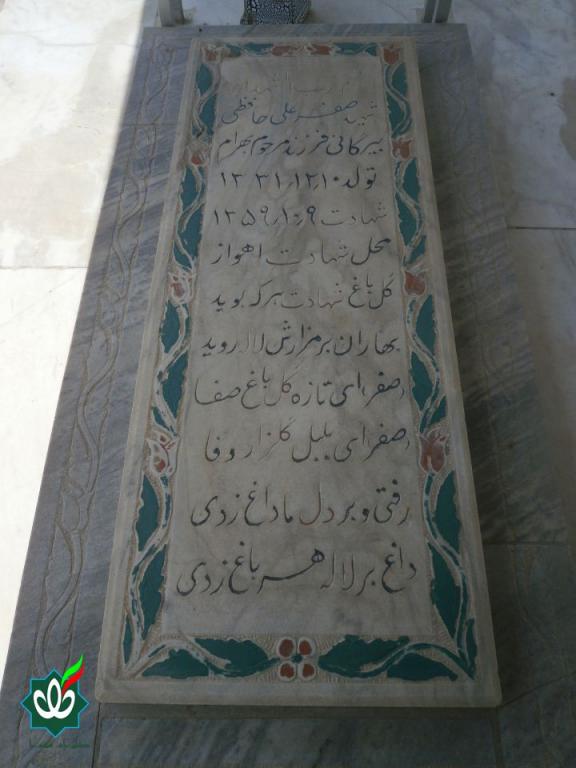 شهید صفر علی حافظی
بیرگانی فرزند مرحوم بهرام
تولد ۱۳۳۱٫۱۲٫۱۰
شهادت ۱۳۵۹٫۱۰٫۹
محل شهادت اهواز
گل باغ شهادت هر که بوید
بهاران بر مزارش لاله روید
(صفر) ای تازه گل باغ صفا
(صفر) ای بلبل گلزار وفا
رفتی و بر دل ما داغ زدی
داغ بر لاله هر باغ زدی